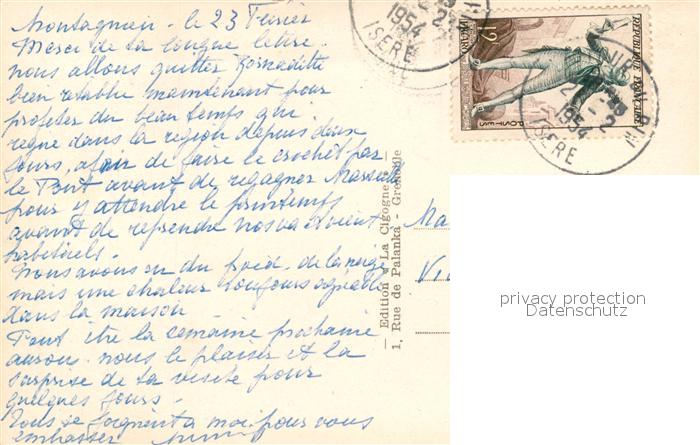 Montagnieu - le 23 Février
Merci de ta longue lettre.
nous allons quitter Bernadette
bien rétablie maintenant pour
profiter du beau temps qui
règne dans la région depuis deux
jours, afin de faire le crochet par
le Pont avant de regagner Marseille
pour y attendre le printemps
avant de reprendre nos va et vient
habituels.
Nous avons eu du froid, de la neige
mais une chaleur toujours agréable
dans la maison.
Peut être la semaine prochaine
aurons nous le plaisir et la
surprise de ta visite pour
quelques jours.
Tous se joignent à moi pour vous
embrasser
— Edition « La Cigogne » —
1, Rue de Palanka - Grenoble
Ma
Vi
1954
ISERE
REPUBLIQUE FRANÇAISE
POSTES
12F
FIGARO
1954
ISERE
privacy protection
Datenschutz